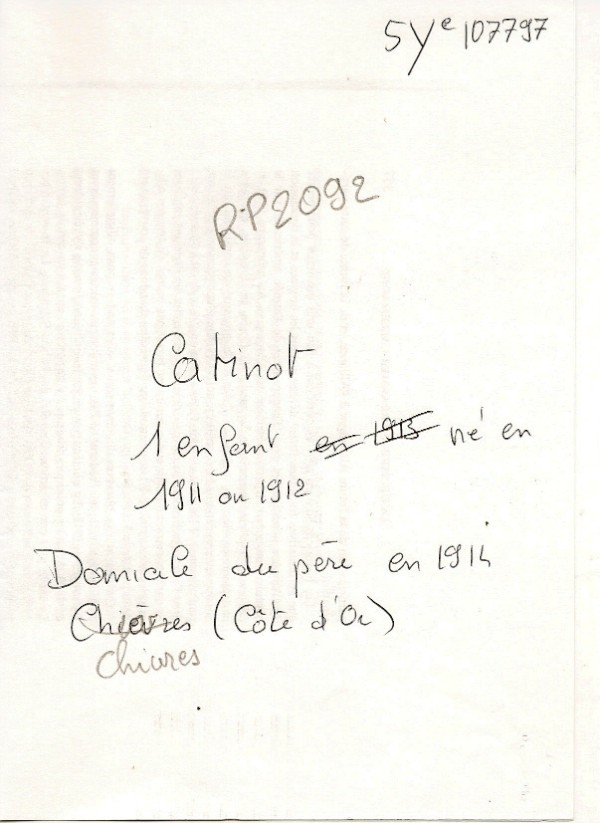 5Ye 107797
RP2092
Catinot
1 enfant en 1913 né en
1911 ou 1912
Domicile du père en 1914
Chièvres (Côte d'Or)
Chivres